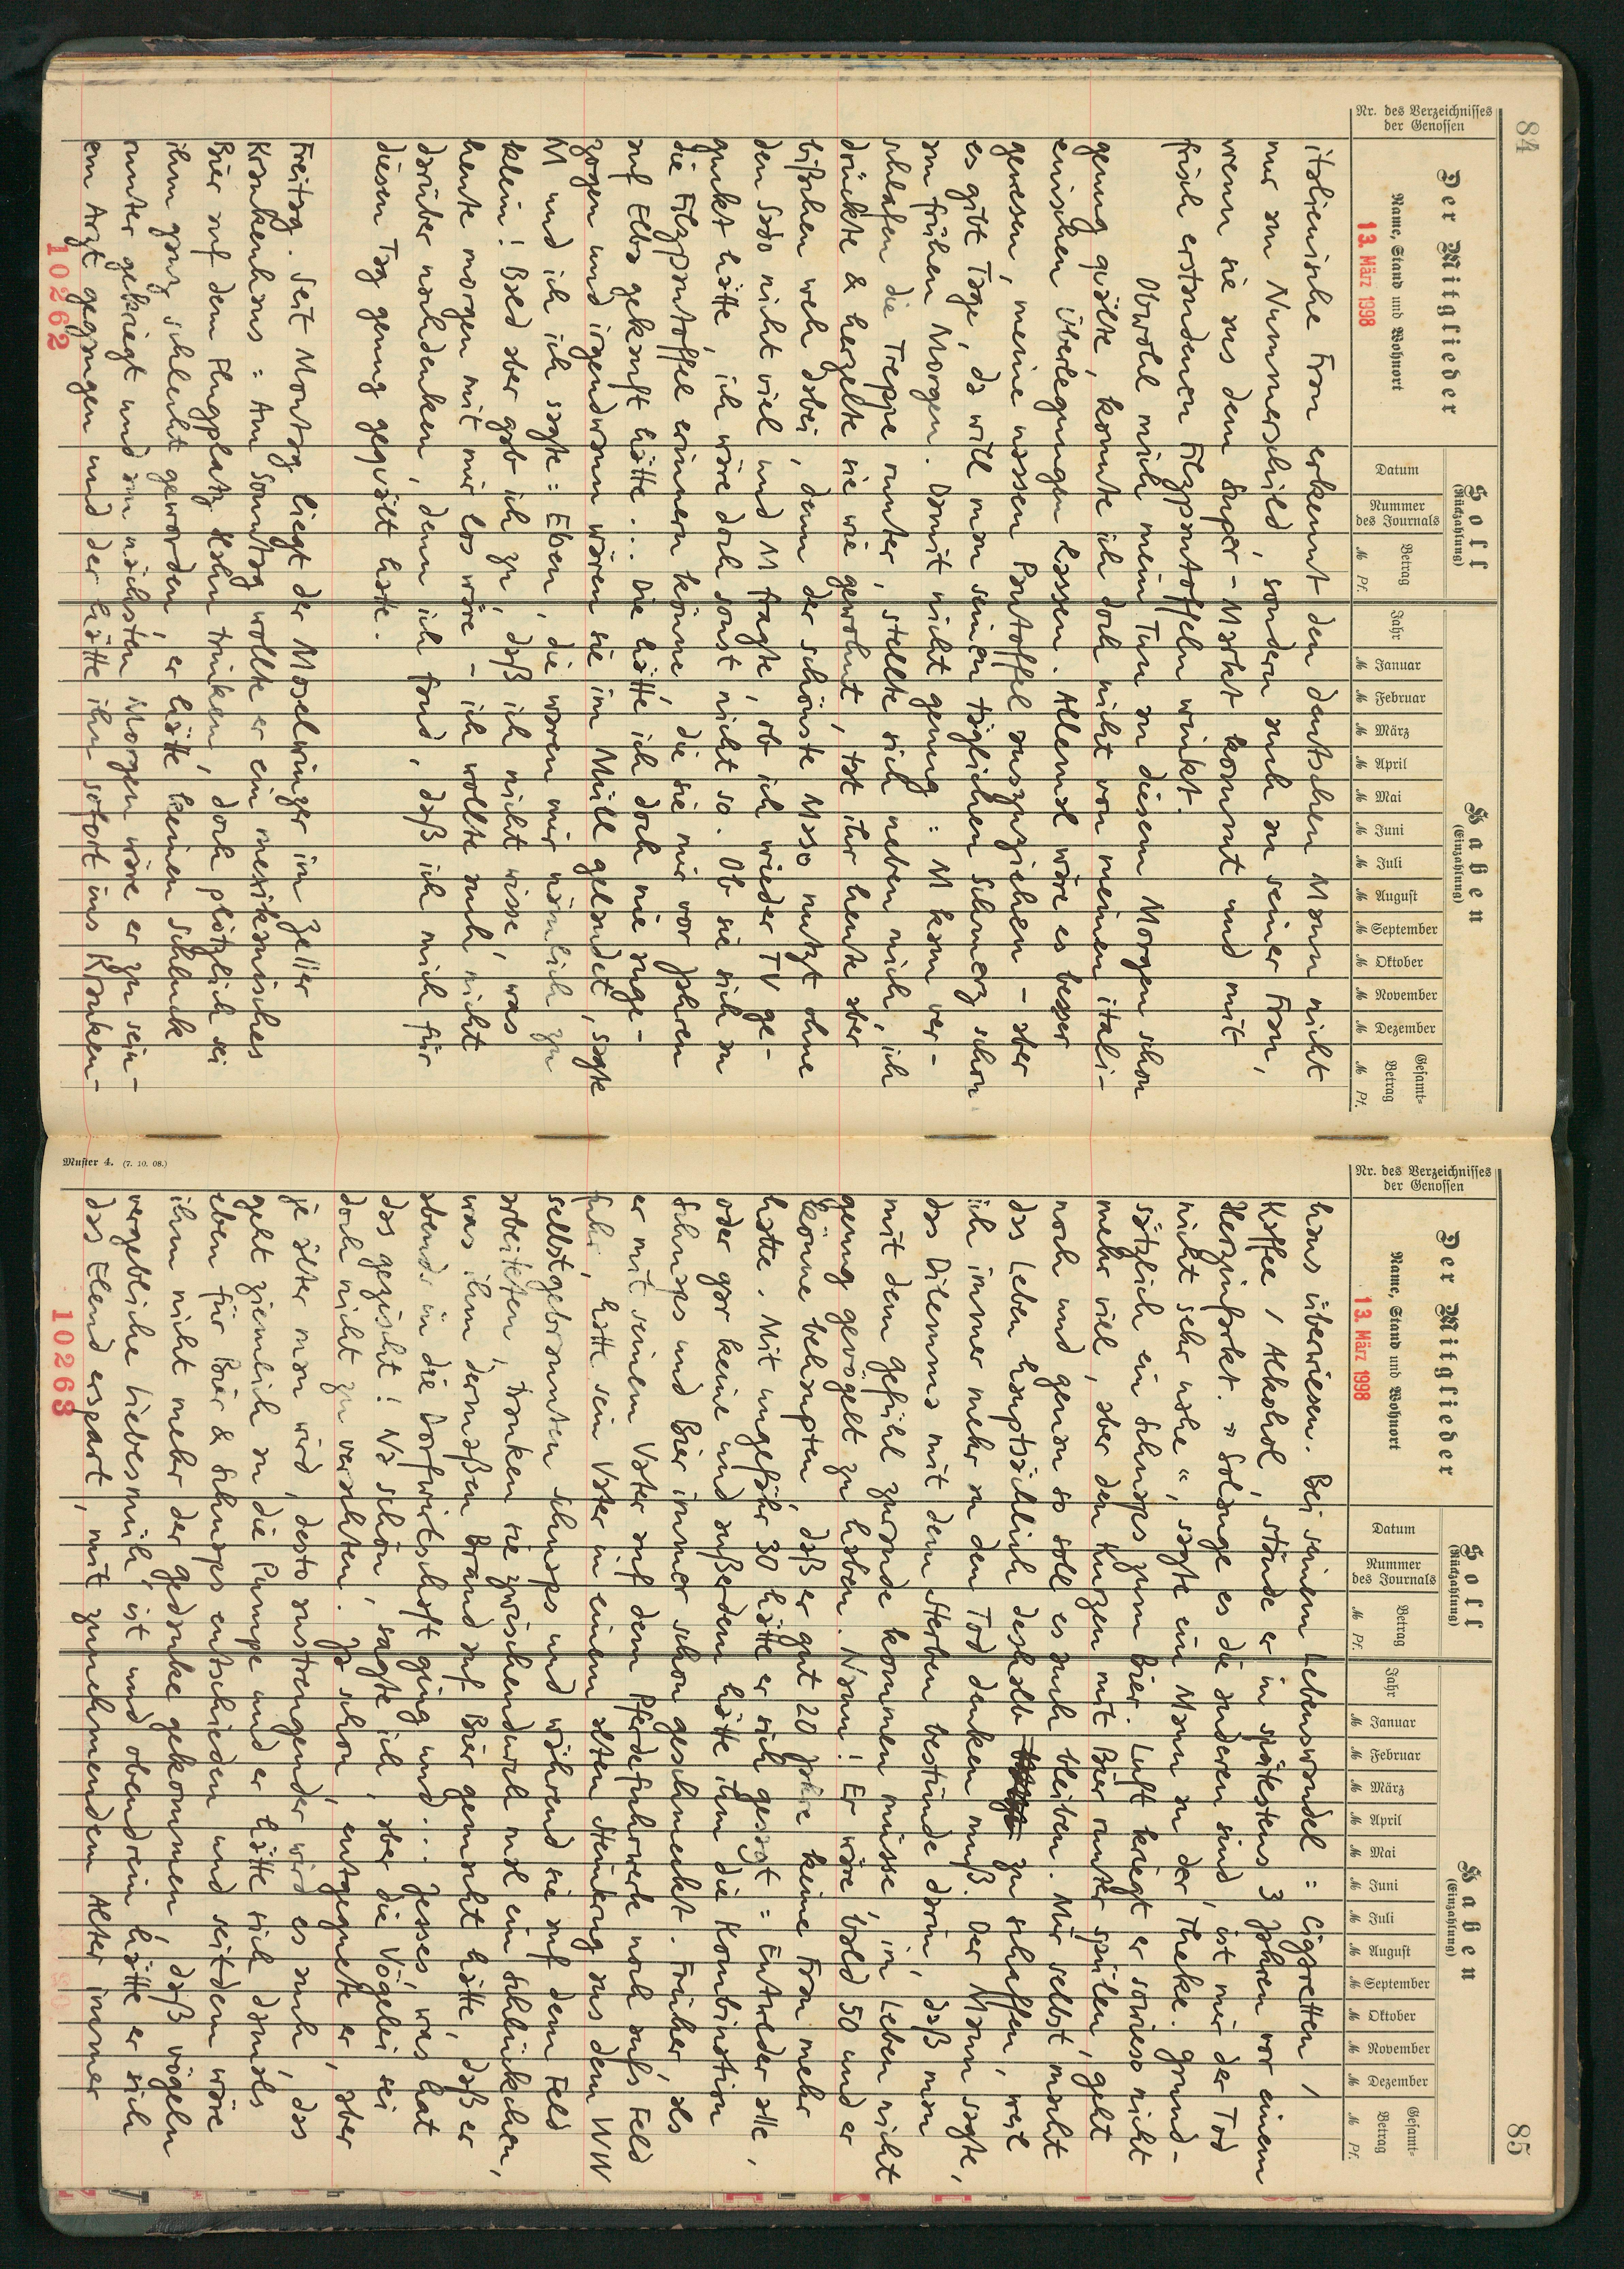 84
Der Mitglieder
Soll
(Rückzahlung)
Haben
(Einzahlung)
Nr. des Verzeichnisses
der Genossen
Name, Stand und Wohnort
Datum
Nummer
des Journals
Betrag
ℳ Pf.
Jahr
ℳ Januar
ℳ Februar
ℳ März
ℳ April
ℳ Mai
ℳ Juni
ℳ Juli
ℳ August
ℳ September
ℳ Oktober
ℳ November
ℳ Dezember
Gesamt-
Betrag
ℳ Pf.
13. März 1998
italienische Frau erkennt den deutschen Mann nicht
nur am Nummerschild, sondern auch an seiner Frau,
wenn sie aus dem Super-Markt kommt und mit
frisch erstandenen Filzpantoffeln winkt.
Obwohl mich mein Tun an diesem Morgen schon
genug quälte, konnte ich doch nicht von meinen itali-
enischen Überlegungen lassen. Allemal wäre es besser
gewesen, meine nassen Pantoffel auszuziehen - aber
es gibt Tage, da will man seinen täglichen Schmerz schon
am frühen Morgen. Damit nicht genug: M kam ver-
schlafen die Treppe runter, stellte sich neben mich, ich
drückte & herzelte sie wie gewohnt, tat ihr heute aber
bißchen weh dabei, denn der schönste Maso nutzt ohne
den Sado nicht viel und M fragte, ob ich wieder TV ge-
guckt hätte, ich wäre doch sonst nicht so. Ob sie sich an
die Filzpantoffel erinnern könne, die sie mir vor Jahren
auf Elba gekauft hätte... Die hätte ich doch nie ange-
zogen und irgendwann wären sie im Müll gelandet, sagte
M und ich ich sagte: Eben, die waren mir nämlich zu
klein! Bald aber gab ich zu, daß ich nicht wisse, was
heute morgen mit mir los wäre - ich wollte auch nicht
darüber nachdenken, denn ich fand, daß ich mich für
diesen Tag genug gequält hatte.
Freitag. Seit Montag liegt der Moselwinzer im Zeller
Krankenhaus: Am Sonntag wollte er ein mexikanisches
Bier auf dem Flugplatz Hahn trinken, doch plötzlich sei
ihm ganz schlecht geworden, er hätte keinen Schluck
runter gekriegt und am nächsten Morgen wäre er zu sein-
em Arzt gegangen und der hätte ihn sofort ins Kranken-
10262
85
Muster 4. (7. 10. 08.)
Der Mitglieder
Soll
(Rückzahlung)
Haben
(Einzahlung)
Nr. des Verzeichnisses
der Genossen
Name, Stand und Wohnort
Datum
Nummer
des Journals
Betrag
ℳ Pf.
Jahr
ℳ Januar
ℳ Februar
ℳ März
ℳ April
ℳ Mai
ℳ Juni
ℳ Juli
ℳ August
ℳ September
ℳ Oktober
ℳ November
ℳ Dezember
Gesamt-
Betrag
ℳ Pf.
13. März 1998
haus überwiesen. Bei seinem Lebenswandel: Cigaretten /
Kaffee / Alkohol, stände er in spätestens 3 Jahren vor einem
Herzinfarkt. "Solange es die anderen sind, ist mir der Tod
nicht sehr nahe", sagte ein Mann an der Theke. Grund-
sätzlich ein Schnaps zum Bier. Luft kriegt er sowieso nicht
mehr viel, aber den Kurzen mit Bier runter spülen, geht
noch und genau so soll es auch bleiben. Mir selbst macht
das Leben hauptsächlich deshalb zu schaffen, weil
ich immer mehr an den Tod denken muß. Der Mann sagte,
das Dilemma mit dem Sterben bestünde darin, daß man
mit dem Gefühl zurande kommen müsse, im Leben nicht
genug gevögelt zu haben. Naun! Er wäre bald 50 und er
könne behaupten, daß er gut 20 Jahre keine Frau mehr
hatte. Mit ungefähr 30 hätte er sich gesagt: Entweder alle,
oder gar keine und außerdem hätte ihm die Kombination
Schnaps und Bier immer schon geschmeckt. Früher, als
er mit seinem Vater auf dem Pferdefuhrwerk noch aufs Feld
fuhr, hatte sein Vater in einem alten Steinkrug aus dem WW
selbstgebrannten Schnaps und während sie auf dem Feld
arbeiteten, tranken sie zwischendurch mal ein Schlückchen,
was ihm dermaßen Brand auf Bier gemacht hätte, daß er
abends in die Dorfwirtschaft ging und... Jesses, was hat
das gezischt! Na schön, sagte ich, aber die Vögelei sei
doch nicht zu verachten. Ja schon, entgegnete er, aber
je älter man wird, desto anstrengender wird es auch, das
geht ziemlich an die Pumpe und er hätte sich damals
eben für Bier & Schnaps entschieden und seitdem wäre
ihm nicht mehr der Gedanke gekommen, daß vögeln
vergebliche Liebesmüh' ist und obendrein hätte er sich
das Elend erspart, mit zunehmendem Alter immer
10263